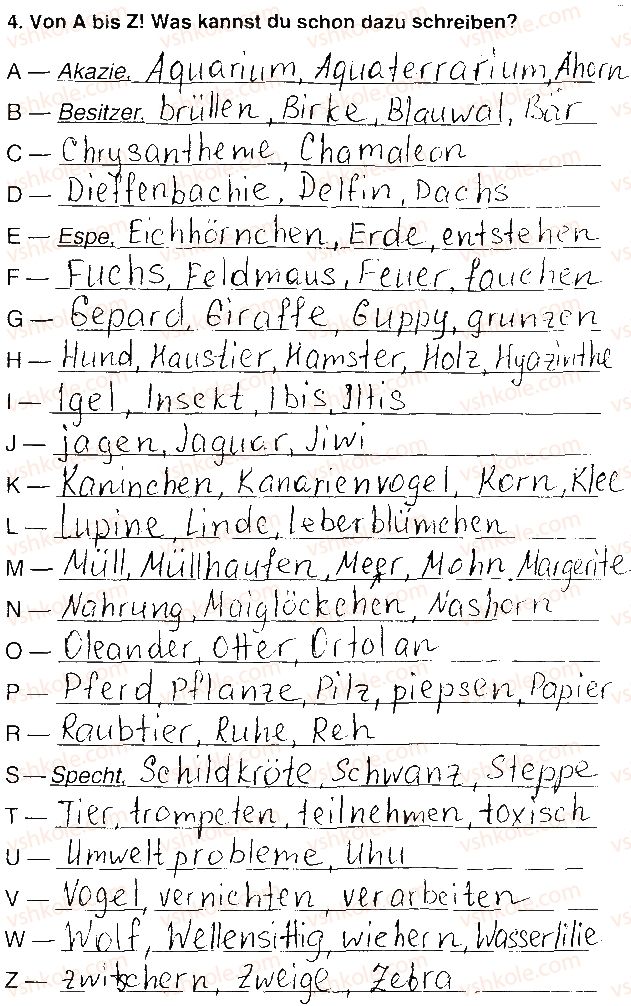 4. Von A bis Z! Was kannst du schon dazu schreiben?
A — Akazie, Aquarium, Aquaterrarium, Ahorn
B — Besitzer, brüllen, Birke, Blauwal, Bär
C — Chrysantheme, Chamaleon
D — Dieffenbachie, Delfin, Dachs
E — Espe, Eichhörnchen, Erde, entstehen
F — Fuchs, Feldmaus, Feuer, fauchen
G — Gepard, Giraffe, Guppy, grunzen
H — Hund, Haustier, Hamster, Holz, Hyazinthe
I — Igel, Insekt, Ibis, Iltis
J — jagen, Jaguar, Jiwi
K — Kaninchen, Kanarienvogel, Korn, Klee
L — Lupine, Linde, Leberblümchen
M — Müll, Müllhaufen, Meer, Mohn, Margerite
N — Nahrung, Maiglöckchen, Nashorn
O — Oleander, Otter, Ortolan
P — Pferd, Pflanze, Pilz, piepsen, Papier
R — Raubtier, Ruhe, Reh
S — Specht, Schildkröte, Schwanz, Steppe
T — Tier, trompeten, teilnehmen, toxisch
U — Umweltprobleme, Uhu
V — Vogel, vernichten, verarbeiten
W — Wolf, Wellensittig, wiehern, Wasserlilie
Z — zwitschern, Zweige, Zebra